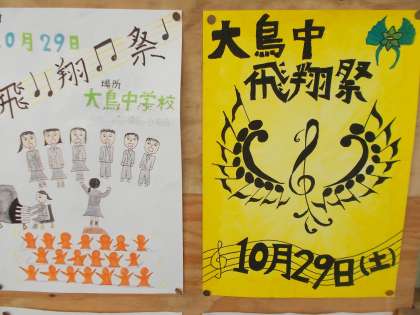 10月29日
飛翔祭
場所
大島中学校
大島中
飛翔祭
10月29日(土)